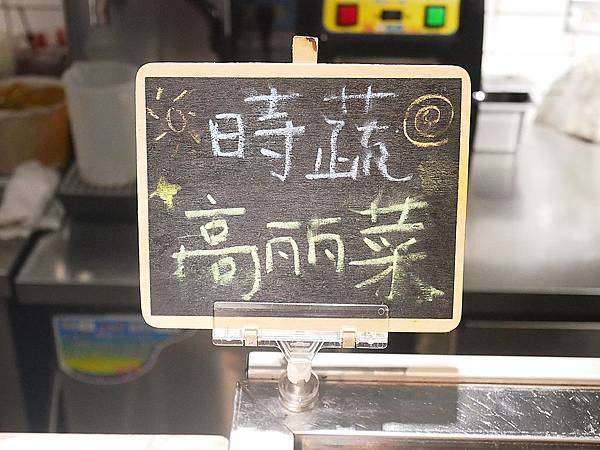 時蔬
高丽菜